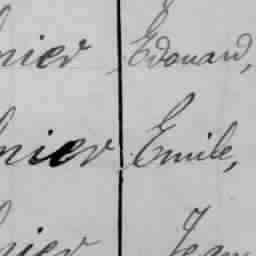 nier Edouard,
nier Emile,
nier Jean